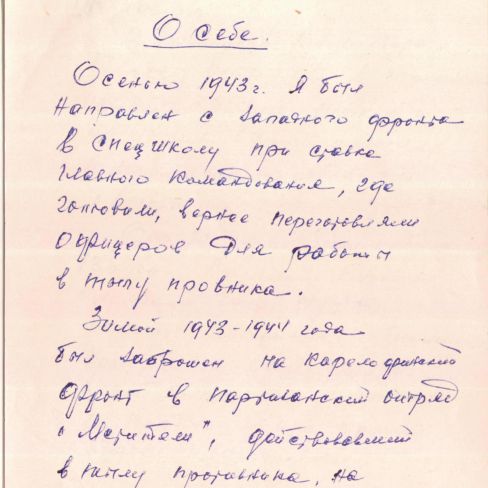 О себе.
Осенью 1943 г. Я был
направлен с западного фронта
в спец школу при ставке
главного командования, где
готовили, вернее переготовляли
офицеров для работы
в тылу провника.
Зимой 1943-1944 года
был заброшен на карело финский
фронт в партизанский отряд
"Мстители", действовавший
в тылу противника, на